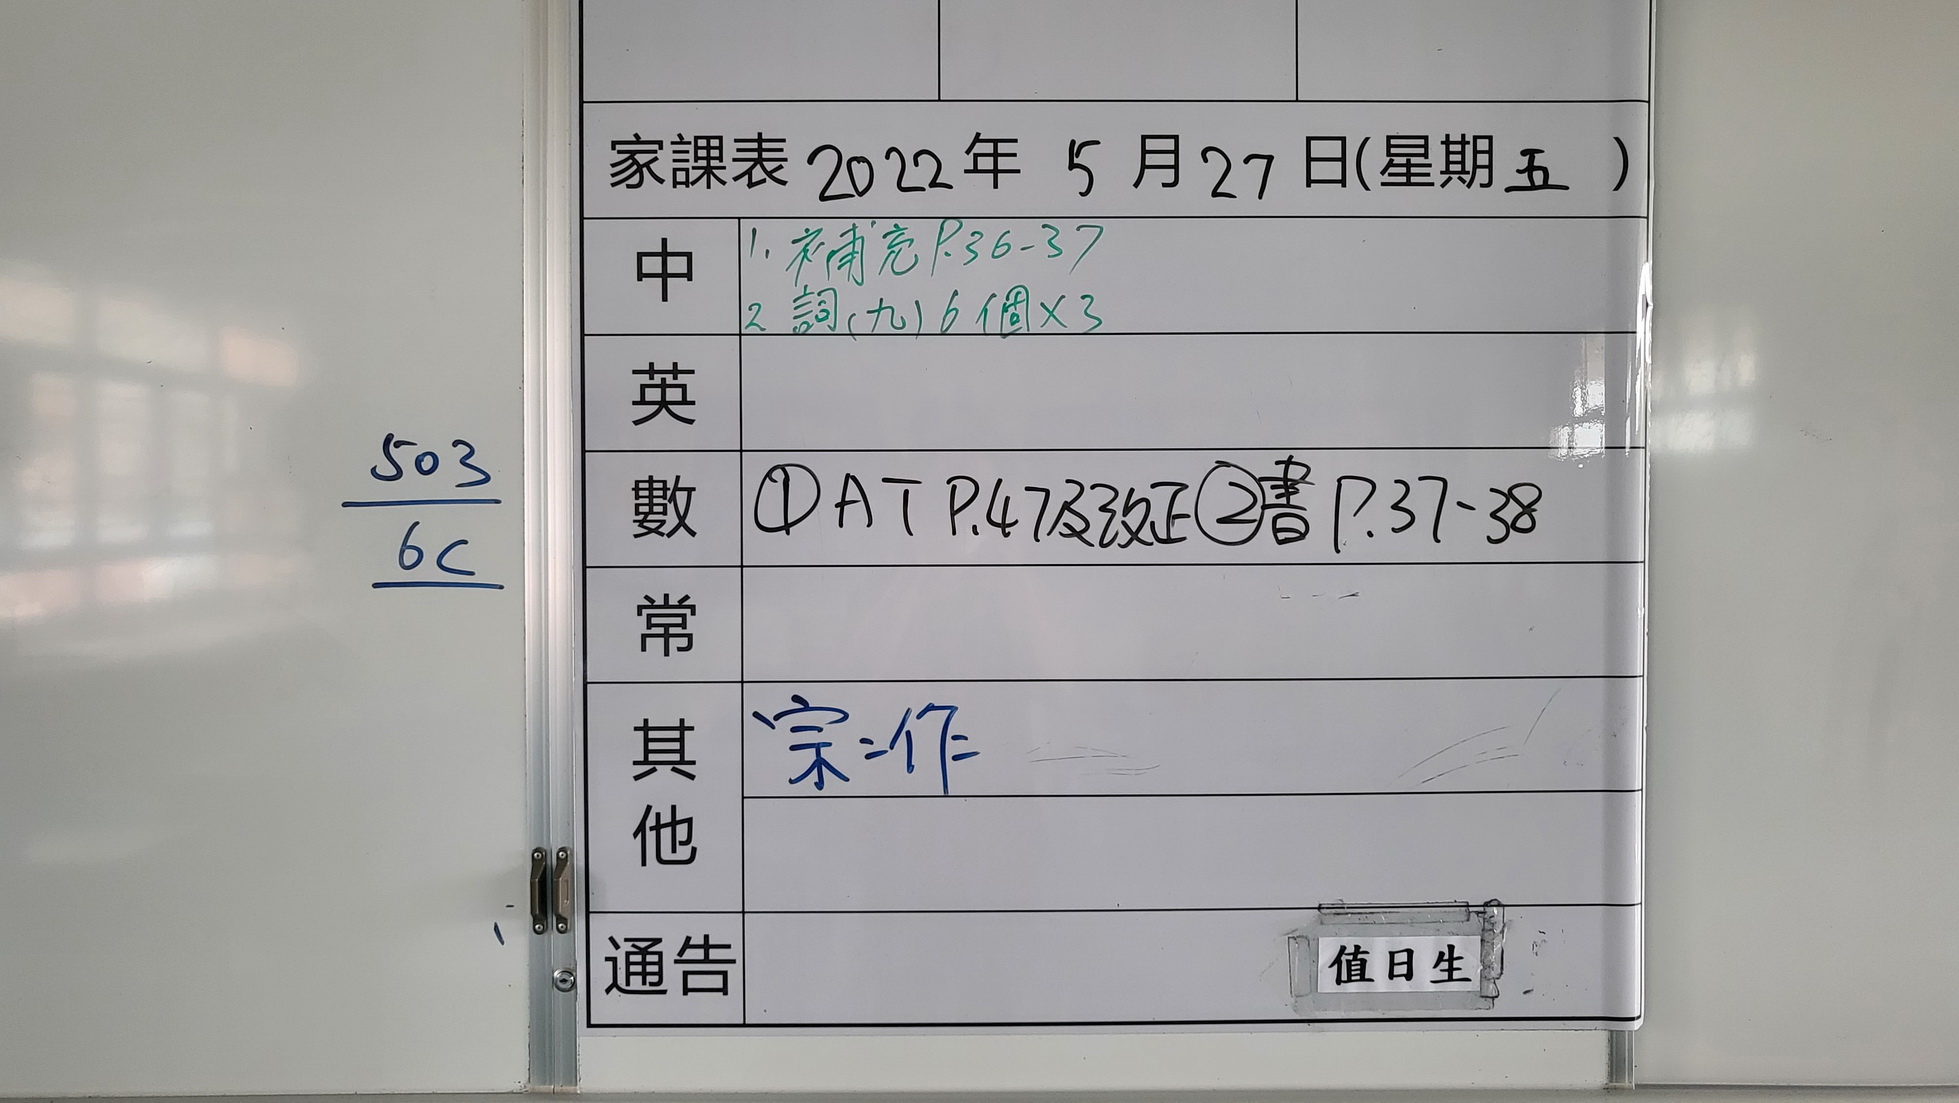 家課表 2022年 5月27日(星期五)
中
1. 補充 P.36-37
2. 詞(九) 6個×3
英
503
6C
數 ①AT P.47及改正②書 P.37-38
常
其他
宗:作
通告
值日生